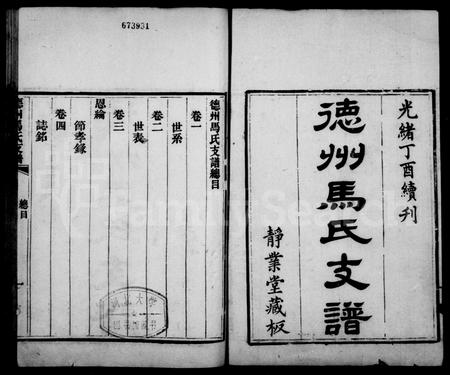 673931
光緒丁酉續刋
德州馬氏支譜
靜業堂藏板
德州馬氏支譜總目
卷一
世系
卷二
世表
卷三
恩綸
節孝錄
卷四
誌銘
德州馬氏支譜
總目
一
FamilySearch